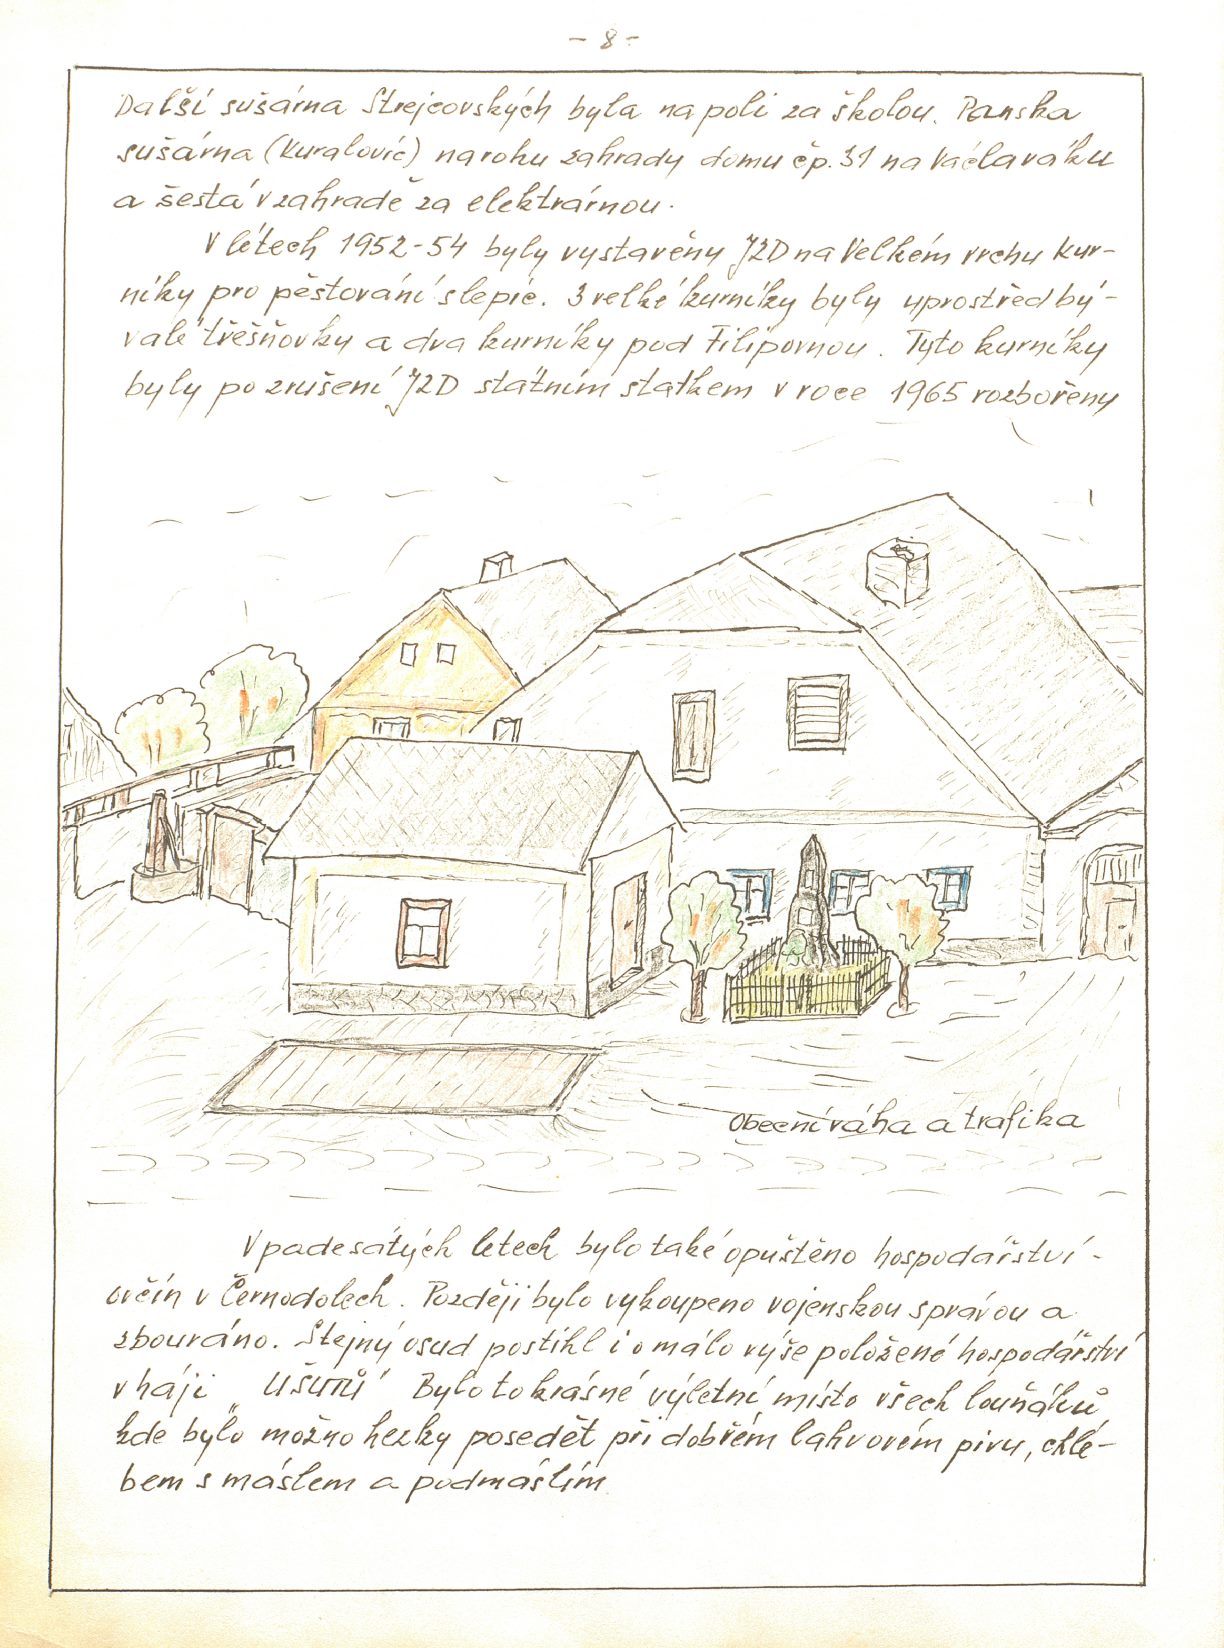 - 8 -
Další sušárna Strejcovských byla na poli za školou. Panska
sušárna (Kuralovic) na rohu zahrady domu čp. 31 na Václaváku
a šestá v zahradě za elektrárnou.
V létech 1952-54 byly vystavěny JZD na Velkém vrchu kur-
níky pro pěstování slepic. 3 velké kurníky byly uprostřed bý-
valé třešňovky a dva kurníky pod Filipovnou. Tyto kurníky
byly po zrušení JZD státním statkem v roce 1965 rozbořeny
Obecní váha a trafika
V padesátých letech bylo také opuštěno hospodářství -
ovčín v Černodolech. Později bylo vykoupeno vojenskou správou a
zbouráno. Stejný osud postihl i o málo výše položené hospodářství
v háji „UŠUTŮ" Bylo to krásné výletní místo všech louňáků
kde bylo možno hezky posedět při dobrém lahvovém pivu, chlé-
bem s máslem a podmáslím